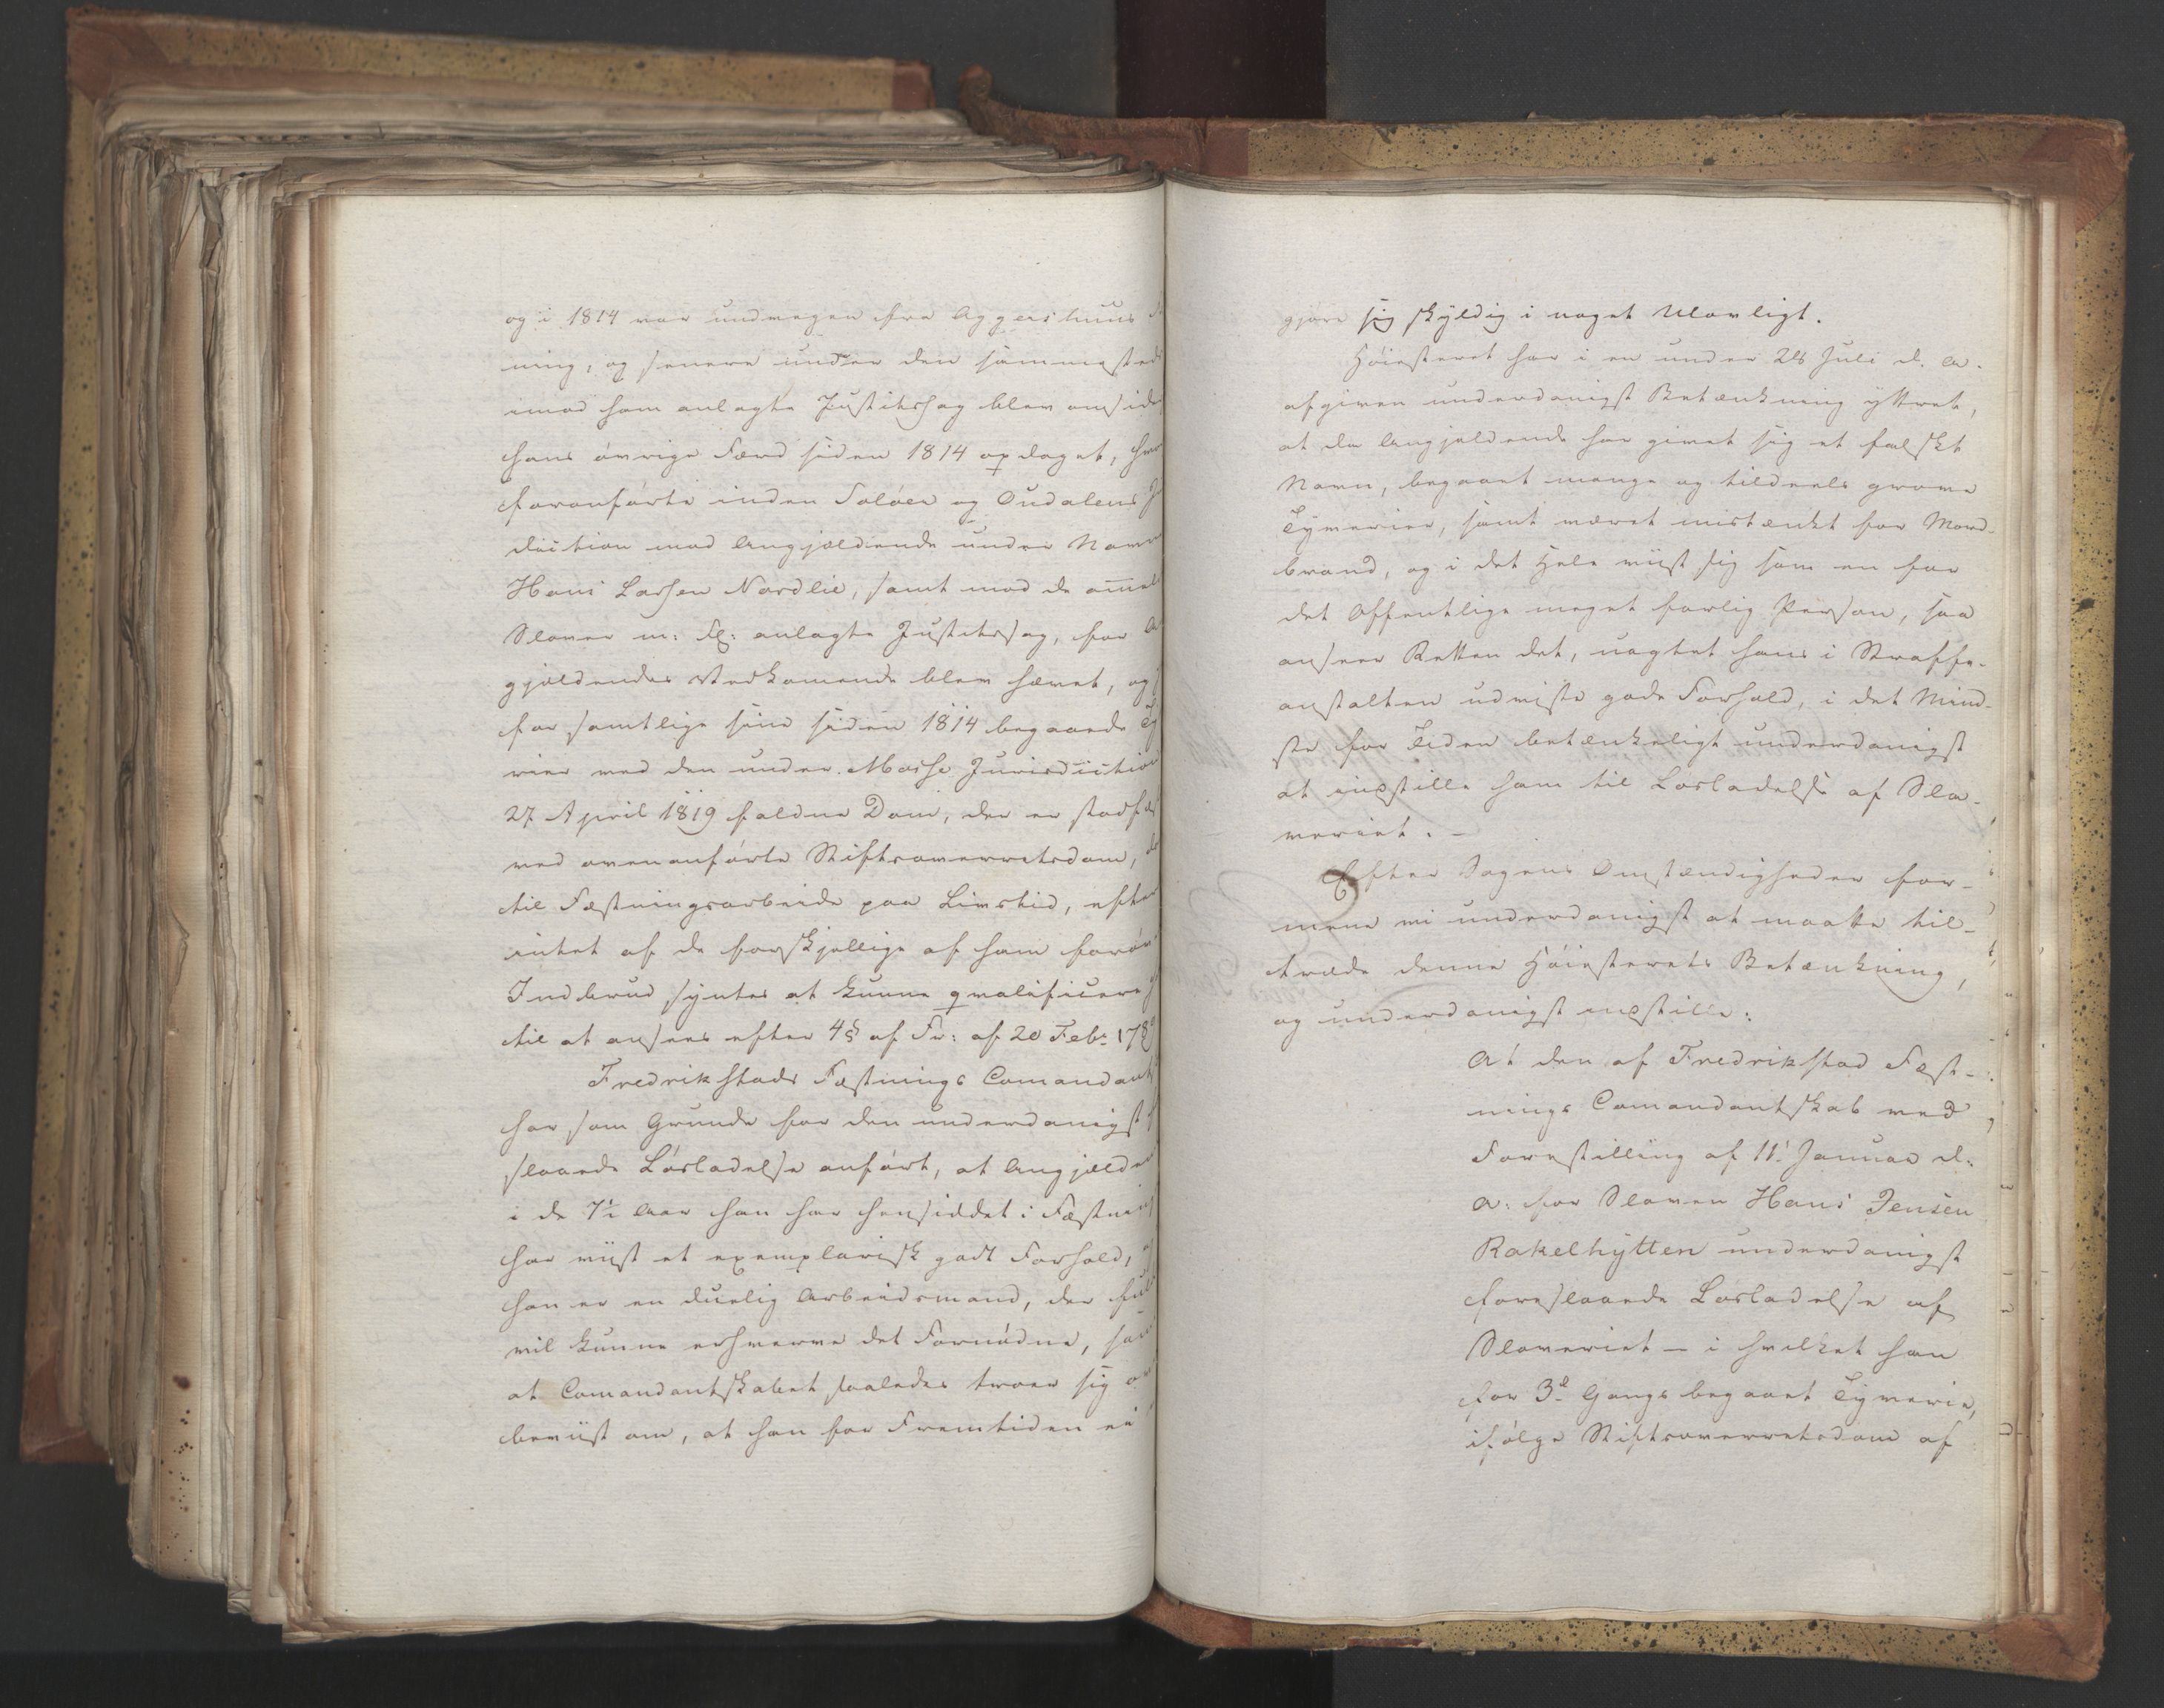 og i 1814 var undvegen fra Aggershuus
ning, og senere under den sammesteds
imod ham anlagte Justitssag blev
hans øvrige Færd siden 1814 opdaget,
foranførte inden Soløer og Oudalens
diction mod Angjældende under Navn
Hans Larsen Nordlie, samt mod de ommelt
Slaver m: fl: anlagte Justitssag, for
gjældendes Vedkomende blev hævet, og
for samtlige sine siden 1814 begaaede
rier ved den under Mosse Jurisdiction
27 April 1819 faldne Dom, der er stadfæ
ved ovenanførte Stiftsoverretsdom,
til Fæstningsarbeide paa Livstid, efter
intet af de forskjellige af ham forøv
Indbrud syntes at kunne qvalificere
til at ansees efter 4§ af Fr: af 20 Febr. 178
Fredrikstads Fæstnings Comandant
har som Grunde for den underdanigst
slaaede Løsladelse anført, at Angjælden
i de 7½ Aar han har hensiddet i Fæstning
har viist et exemplarisk godt Forhold,
han er en duelig Arbeidsmand, der
vil kunne erhverve det Fornødne, saa
at Comandantskabet saaledes troer sig
beviist om, at han for Fremtiden ei
gjøre sig skyldig i noget Ulovligt.
Høiesteret har i en under 28 Juli d. A.
afgiven underdanigst Betænkning yttret,
at da Angjeldende har givet sig et falskt
Navn, begaaet mange og tildeels grove
Tyverier, samt været mistænkt for Mord-
brand, og i det Hele viist sig som en for
det Offentlige meget farlig Person, saa
anseer Retten det, uagtet hans i Straffe-
anstalten udviste gode Forhold, i det Mind-
ste for Tiden betænkeligt underdanigst
at indstille ham til Løsladelse af Sla-
veriet. –
Efter Sagens Omstændigheder for-
mene vi underdanigst at maatte til-
træde denne Høiesterets Betænkning,
og underdanigst indstille:
At den af Fredrikstad Fæst-
nings Comandantskab ved
Forestilling af 11. Januar d.
A. for Slaven Hans Jensen
Rakelhytten underdanigst
foreslaaede Løsladelse af
Slaveriet – i hvilket han
for 3de Gangs begaaet Tyverie,
ifølge Stiftsoverretsdom af